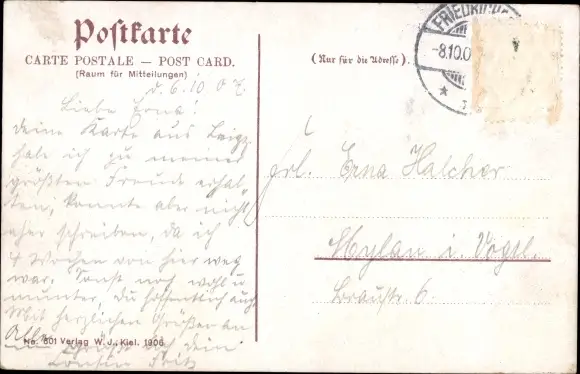 Postkarte
CARTE POSTALE — POST CARD.
(Raum für Mitteilungen)
(Nur für die Adresse).
FRIEDRICHS
-8.10.0
d. 6.10 07.
Liebe Erna!
Deine Karte aus Leipz.
habe ich zu meiner
größten Freude erhal-
ten, konnte aber nicht
eher schreiben, da ich
4 Wochen von hier weg
war. Sonst noch wohl u
munter, Du hoffentlich auch
Mit herzlichen Grüßen an
Alle grüßt dich dein
Cousin Fritz
No. 601 Verlag W. J., Kiel. 1906
Frl. Erna Halcher
Mylau i. Vogtl.
Braustr. 6